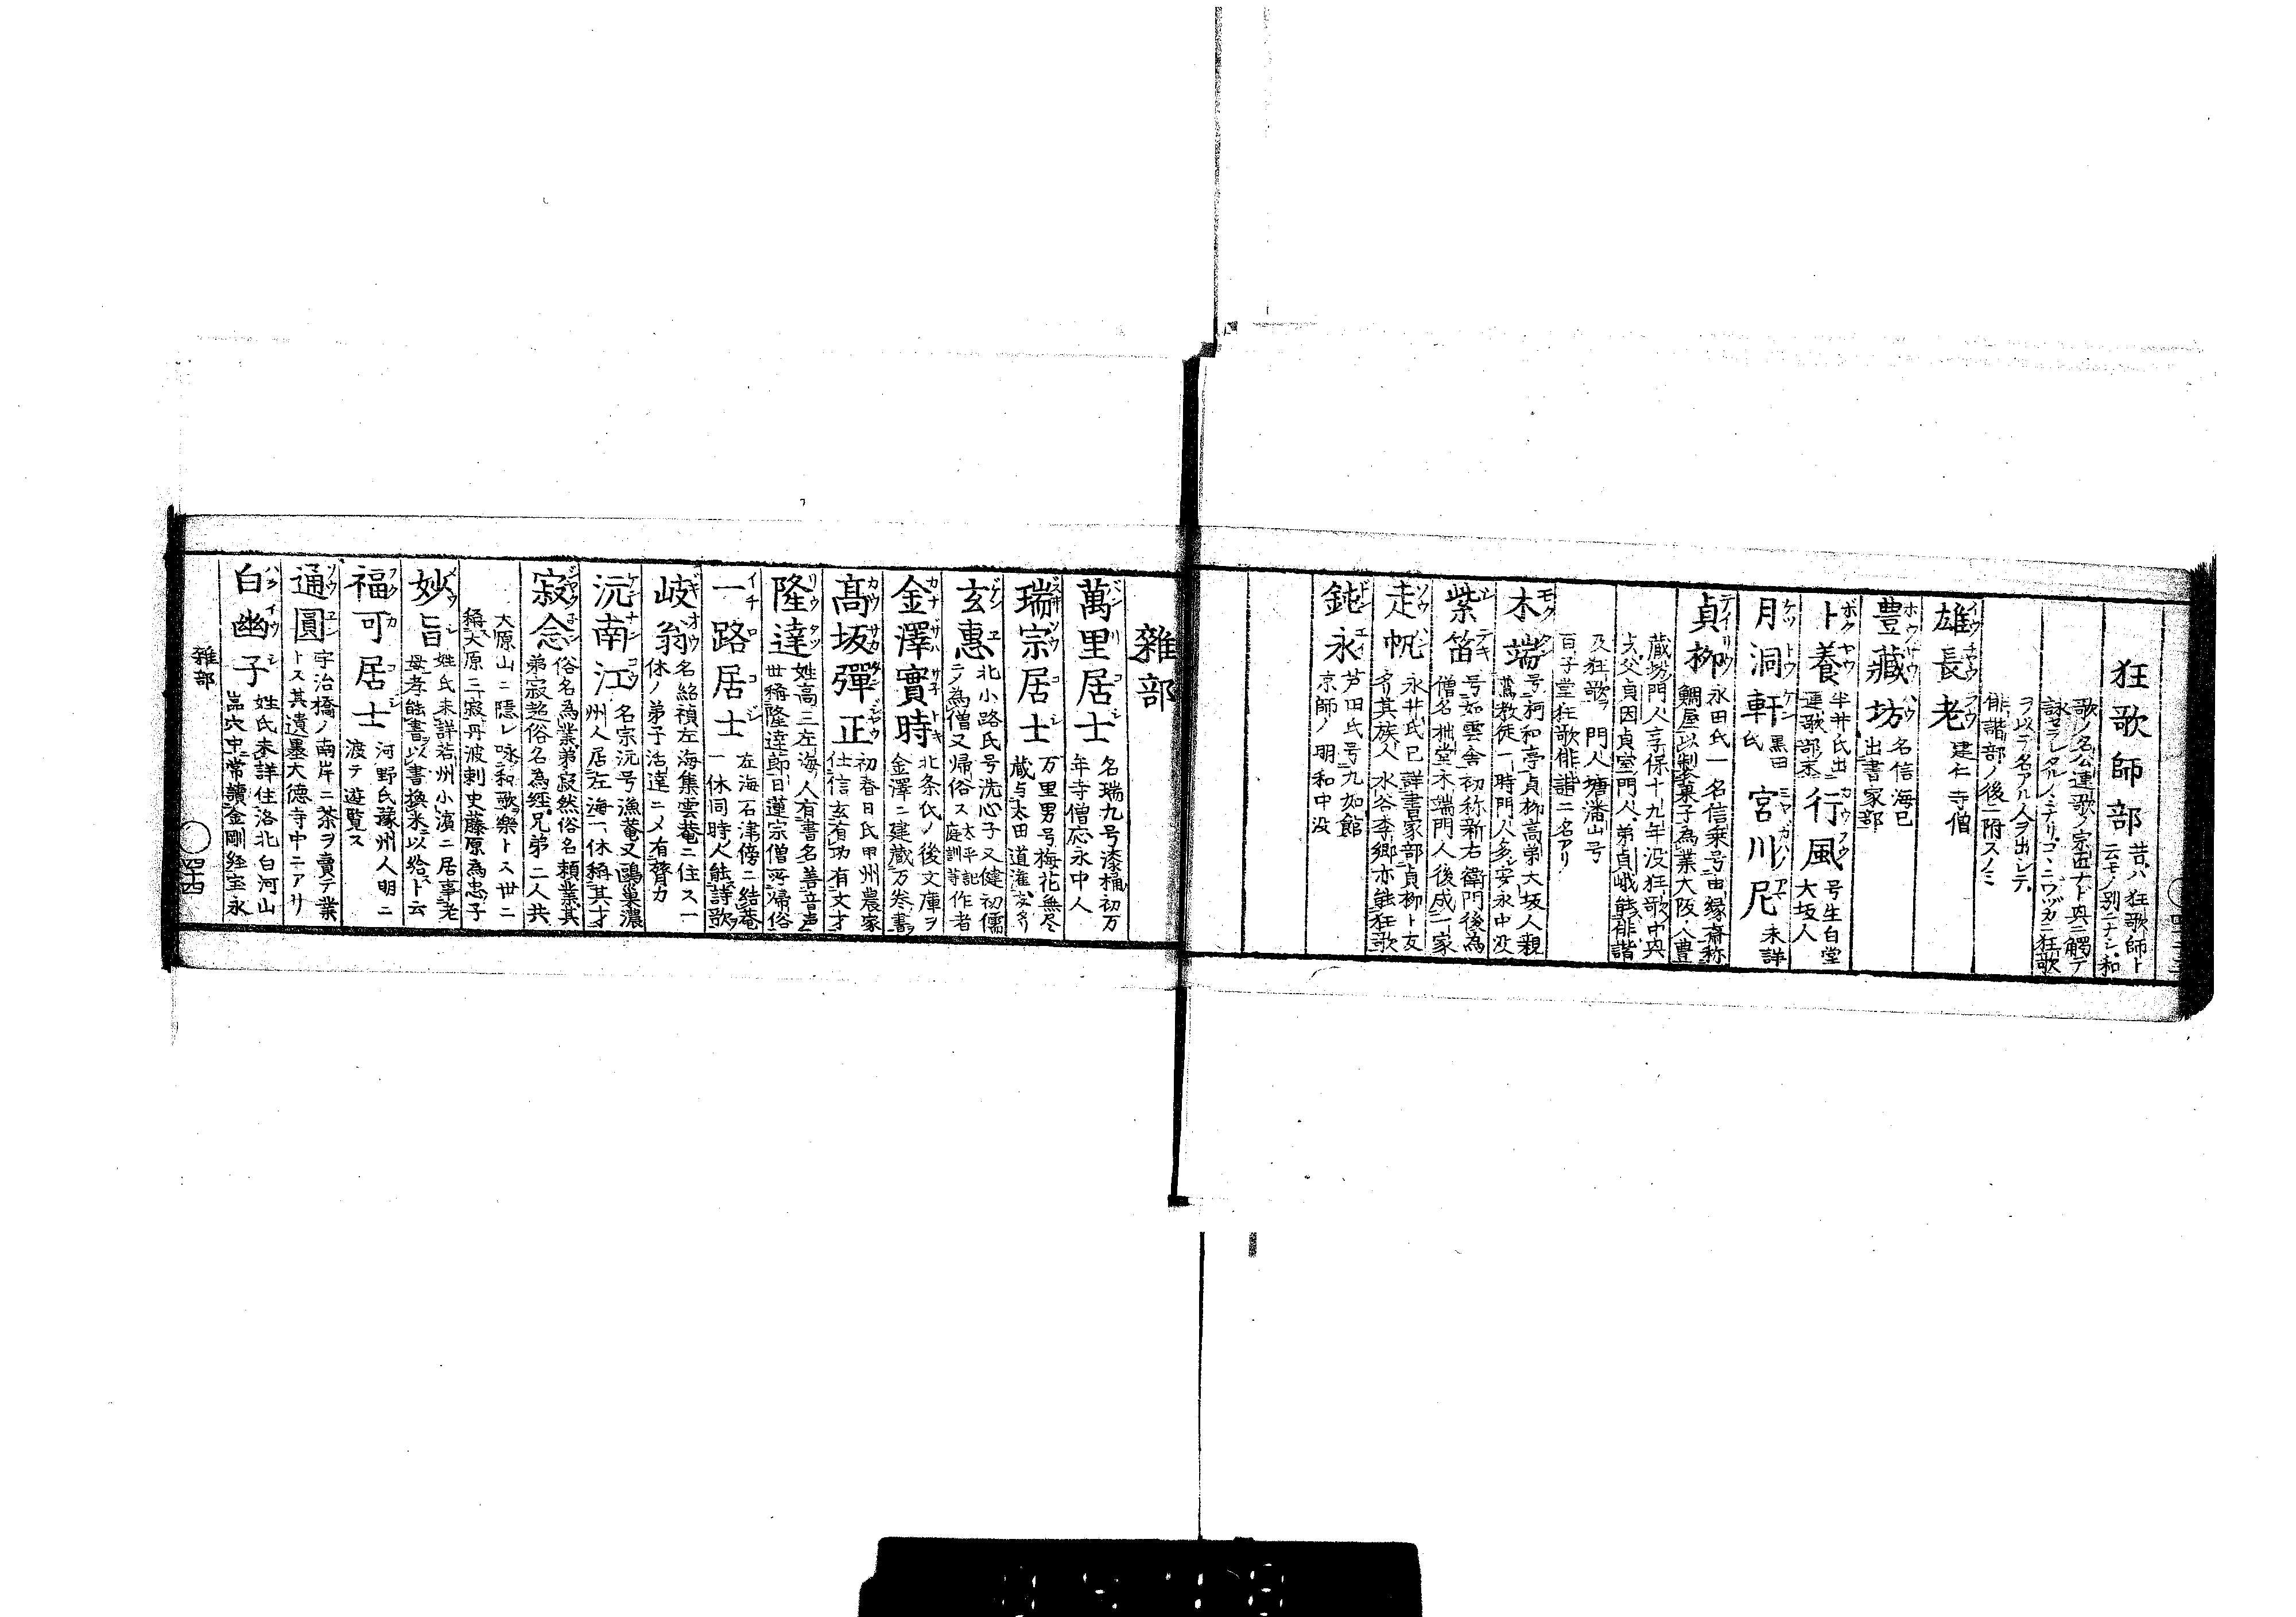 狂歌師部
昔ハ狂歌師ト
云モノ別ニナシ和
歌ノ名公連歌ノ宗匠ナド興ニ觸テ
詠ゼラレタルノミナリコヽニワヅカニ狂歌
ヲ以テ名アル人ヲ出シテ
俳諧部ノ後ニ附スノミ
雄長老
建仁寺僧
豊藏坊
名信海已
出書家部
卜養
半井氏出
連歌部末
行風
号生白堂
大坂人
月洞軒
黒田
氏
宮川尼
未詳
貞柳
永田氏一名信乗号由縁齋称
鯛屋以製菓子為業大阪人豊
蔵坊門人享保十九年没狂歌中興
也父貞因貞室門人弟貞峨能俳諧
及狂歌 門人塘潘山号
百子堂狂歌俳諧ニ名アリ
木端
号栢和亭貞柳高弟大坂人親
鸞教徒一時門人多安永中没
紫笛
号如雲舎初称新右衛門後為
僧名拙堂木端門人後成一家
走帆
永井氏已詳書家部貞柳ト友
タリ其族人水谷李郷亦能狂歌
鈍永
芦田氏号九如館
京師ノ明和中没
雜部
萬里居士
名瑞九号漆桶初万
年寺僧応永中人
瑞宗居士
万里男号梅花無尽
蔵与太田道潅友タリ
玄惠
北小路氏号洗心子又健初儒
ニノ為僧又帰俗ス太平記
庭訓等作者
金澤實時
北条氏ノ後文庫ヲ
金澤ニ建蔵万巻書
高坂彈正
初春日氏甲州農家
仕信玄有功有文才
隆達
姓高三左海人有書名善音声
世稱隆達節日蓮宗僧所帰俗
一路居士
在海石津傍ニ結菴
一休同時人能詩歌
岐翁
名紹禎左海集雲菴ニ住ス一
休ノ弟子活達ニメ有膂力
沅南江
名宗沅号漁菴又鷗巣濃
州人居左海一休稱其才
寂念
俗名為業弟寂然俗名頼業其
弟寂超俗名為経兄弟二人共
大原山ニ隠レ咏和歌樂トス世ニ
稱大原三寂丹波刺史藤原為忠子
妙旨
姓氏未詳若州小濱ニ居事老
母孝能書以書換米以給ト云
福可居士
河野氏豫州人明ニ
渡テ遊覧ス
通圓
宇治橋ノ南岸ニ茶ヲ賣テ業
トス其遺墨大徳寺中ニアリ
白幽子
姓氏未詳住洛北白河山
嵓穴中常讀金剛経宝永
雜部
四十四